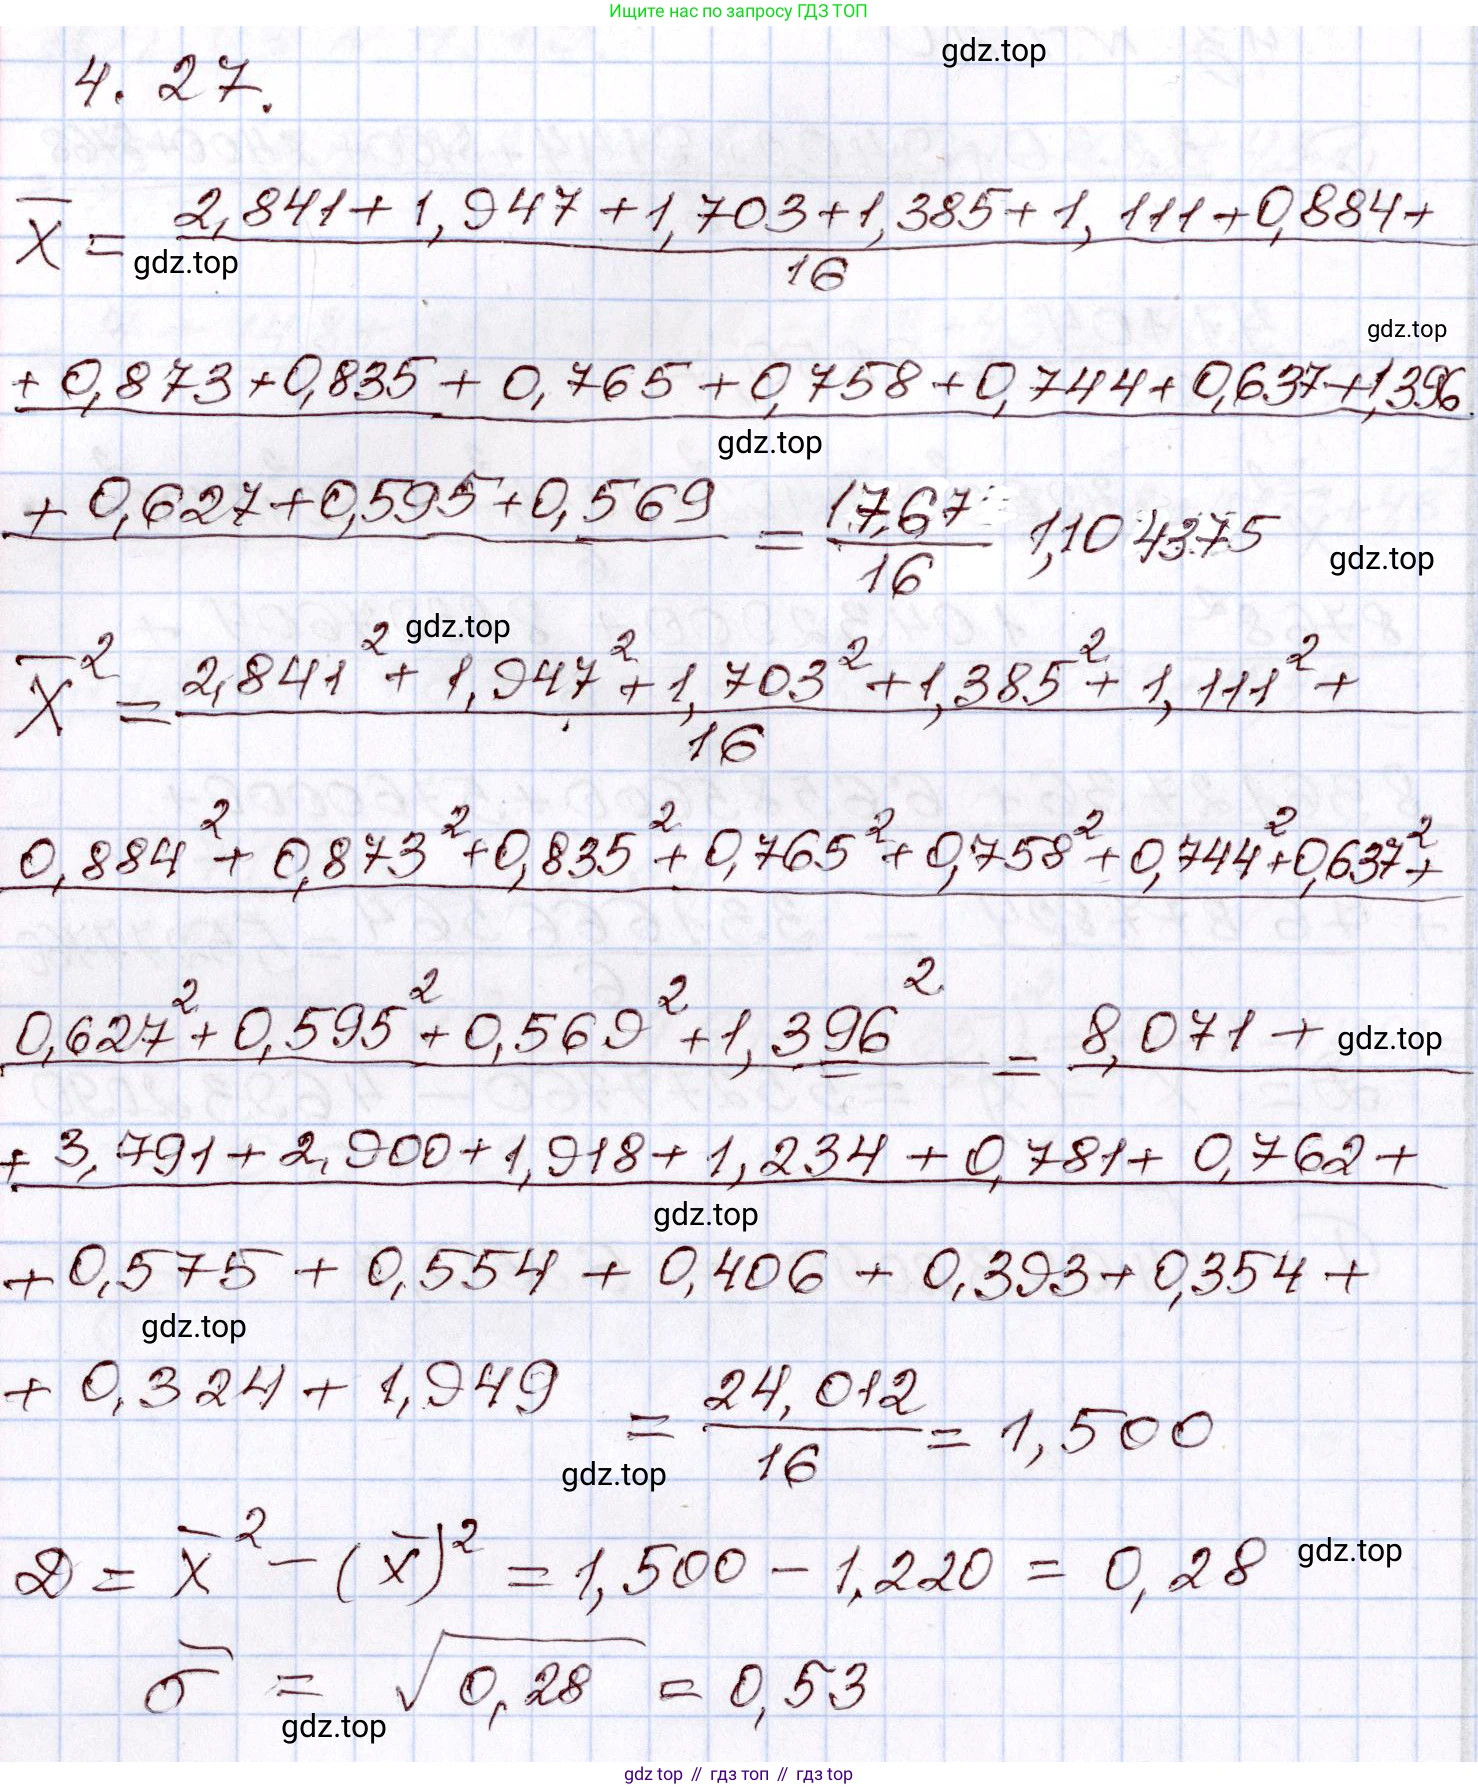 Ищите нас по запросу ГДЗ ТОП
gdz.top
4.27.
x̅ = 2,841+1,947+1,703+1,385+1,111+0,884+
gdz.top
16
gdz.top
+0,873+0,835+0,765+0,758+0,744+0,637+1,396
gdz.top
+0,627+0,595+0,569 = 17,67 / 16 1,104375
gdz.top
gdz.top
x̅² = 2,841²+1,947²+1,703²+1,385²+1,111²+
16
0,884²+0,873²+0,835²+0,765²+0,758²+0,744²+0,637²+
0,627²+0,595²+0,569²+1,396² = = 8,071+
gdz.top
+3,791+2,900+1,918+1,234+0,781+0,762+
gdz.top
+0,575+0,554+0,406+0,393+0,354+
gdz.top
+0,324+1,949 = 24,012 / 16 = 1,500
gdz.top
D = x̅² - (x̅)² = 1,500 - 1,220 = 0,28
gdz.top
σ̅ = √0,28 = 0,53
gdz.top
gdz top // гдз топ // гдз.top